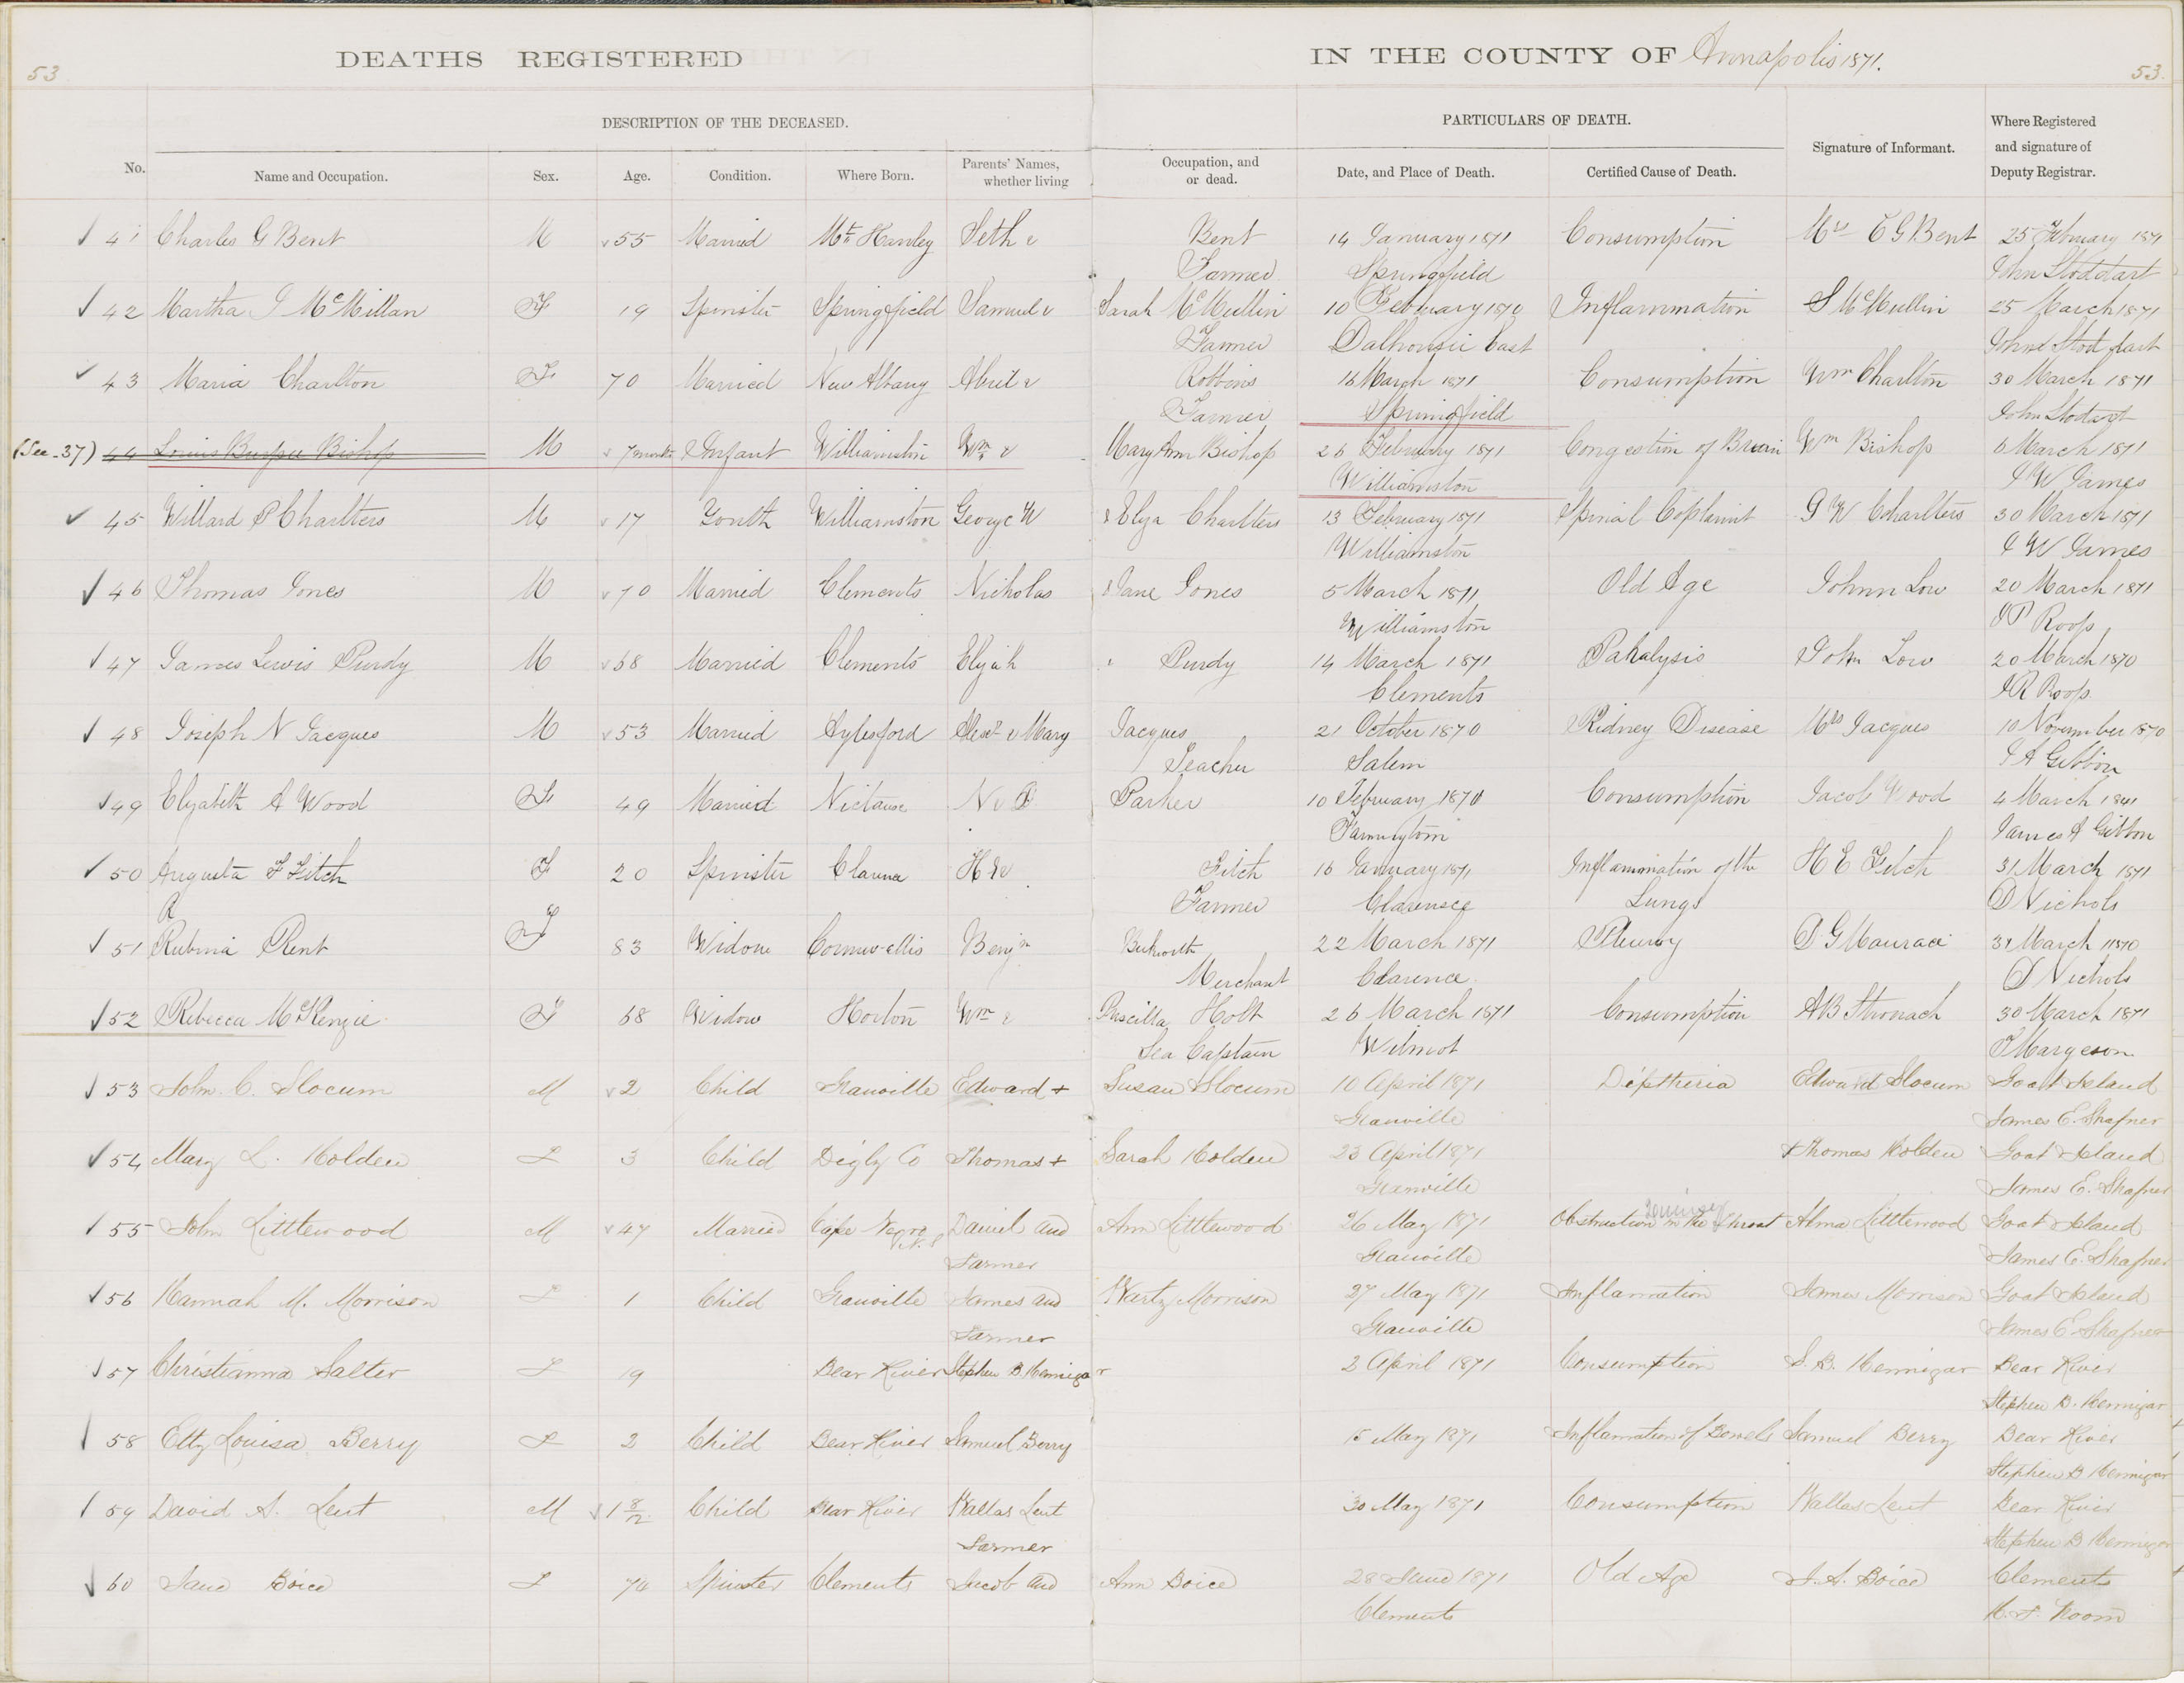 53
DEATHS REGISTERED
IN THE COUNTY OF Annapolis 1871.
53.
DESCRIPTION OF THE DECEASED.
PARTICULARS OF DEATH.
No. Name and Occupation. Sex. Age. Condition. Where Born. Parents' Names, whether living Occupation, and or dead. Date, and Place of Death. Certified Cause of Death. Signature of Informant. Where Registered and signature of Deputy Registrar.
41 Charles G Bent M 55 Married Mt Hanley Seth & Bent 14 January 1871 Consumption Mrs C G Bent 25 February 1871
Farmer Springfield John Stoddart
42 Martha J McMillan F 19 Spinster Springfield Samuel & Sarah McMullin 10 February 1870 Inflammation S McMullin 25 March 1871
Farmer Dalhousie East John Stoddart
43 Maria Charlton F 70 Married New Albany Abriel & Robbins 16 March 1871 Consumption Wm Charlton 30 March 1871
Farmer Springfield John Stodart
(See 37) 44 Louis Burpee Bishop M 7 months Infant Williamston Wm & Mary Ann Bishop 26 February 1871 Congestion of Brain Wm Bishop 6 March 1871
Williamston J W James
45 Willard P Charlters M 17 Youth Williamston George W & Elza Charlters 13 February 1871 Spinal Coplaint G W Coharlters 30 March 1871
Williamston J W James
46 Thomas Jones M 70 Married Clements Nicholas & Jane Jones 5 March 1871 Old Age Johnn Low 20 March 1871
Williamston J P Roop
47 James Lewis Purdy M 68 Married Clements Elijah Purdy 14 March 1871 Pahalysis John Low 20 March 1870
Clements J R Roop
48 Joseph N Jacques M 53 Married Aylesford Alexr & Mary Jacques 21 October 1870 Kidney Disease Mrs Jacques 10 November 1870
Teacher Salem J A Gibbon
49 Elizabeth A Wood F 49 Married Nictaux N & P Parker 10 February 1870 Consumption Jacob Wood 4 March 1841
Farmington James A Gibbon
50 Augusta F Fitch F 20 Spinster Clarence H E & Fitch 16 January 1871 Inflammation of the H E Fitch 31 March 1871
R Farmer Clarensce Lungs D Nichols
51 Rubina Rent F 83 Widow Cornwallis Benjn Beckwith 22 March 1871 Pleurisy 31 March 1870
Merchant Clarence D Nichols
52 Rebecca McKenzie F 68 Widow Horton Wm & Priscilla Holt 26 March 1871 Consumption A B Thronach 30 March 1871
Sea Captain Wilmot Margeson
53 John C. Slocum M 2 Child Granville Edward + Susan Slocum 10 April 1871 Diptheria Edward Slocum Goat Island
Granville James E. Shafner
54 Mary L. Holden F 3 Child Digby Co Thomas + Sarah Holden 23 April 1871 + Thomas Holden Goat Island
Granville James E. Shafner
55 John Littlewood M 47 Married Cape Negro N.S Daniel and Ann Littlewood 26 May 1871 Obstruction in the throat Alma Littlewood Goat Island
Farmer Granville James E. Shafner
56 Hannah M. Morrison F 1 Child Granville James and Wartz Morrison 27 May 1871 Inflamation James Morrison Goat Island
Farmer Granville James E. Shafner
57 Christianna Salter F 19 Bear River Stephen B. Hennigar 2 April 1871 Consumption S. B. Hennigar Bear River
Stephen B. Hennigar
58 Etty Louisa Berry F 2 Child Bear River Samuel Berry 15 May 1871 Inflamation of Bowels Samuel Berry Bear River
Stephen B Hennigar
59 David A. Lent M 1 8/12 Child Bear River Wallas Lent 30 May 1871 Consumption Wallas Lent Bear River
Farmer Stephen B Hennigar
60 Jane Boice F 70 Spinster Clements Jacob and Ann Boice 28 June 1871 Old Age J. A. Boice Clements
Clements